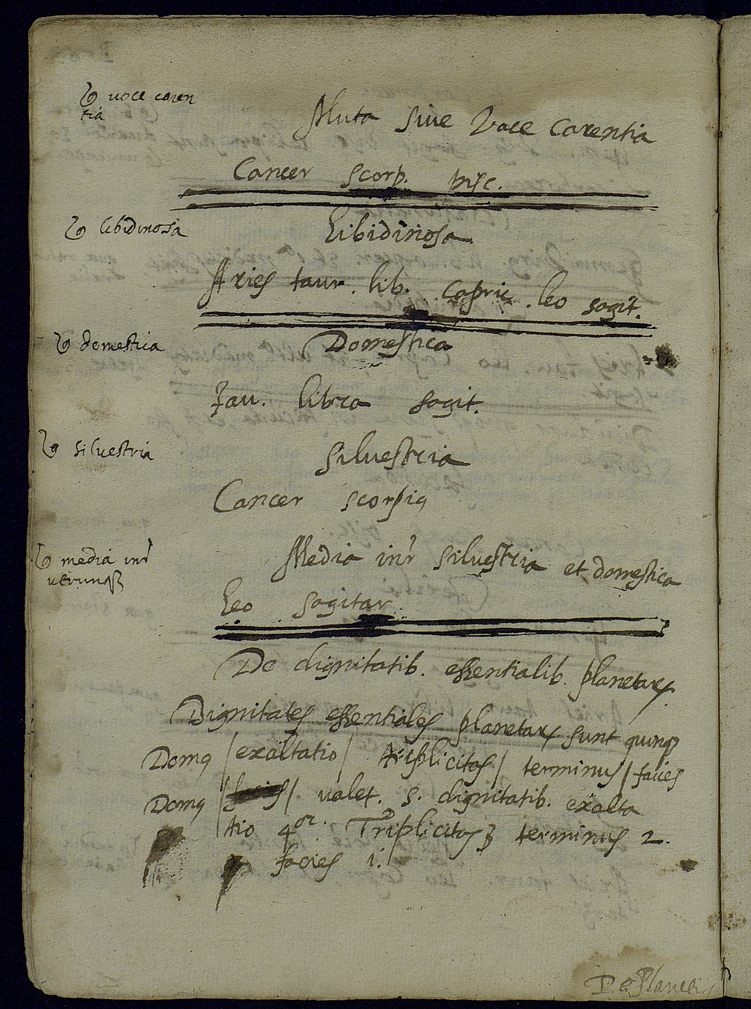 voce caren
tia
Muta sive voce carentia
Cancer scorp. pisc.
libidinosa
Libidinosa
Aries taur. lib. capric. leo sagit.
domestica
Domestica
Tau. libra sagit.
silvestria
Silvestria
Cancer scorpiꝯ
media intʳ
utrunqꝫ
Media intʳ silvestria et domestica
Leo sagitar
De dignitatib. essentialib. planetarꝝ
Dignitates essentiales planetarꝝ sunt quinqꝫ
Domꝯ / exaltatio / triplicitas / terminus / facies
Domꝯ / valet. 5. dignitatib. exalta
tio 4ᵒʳ. Triplicitas 3 terminus 2.
facies i.
De Planetis